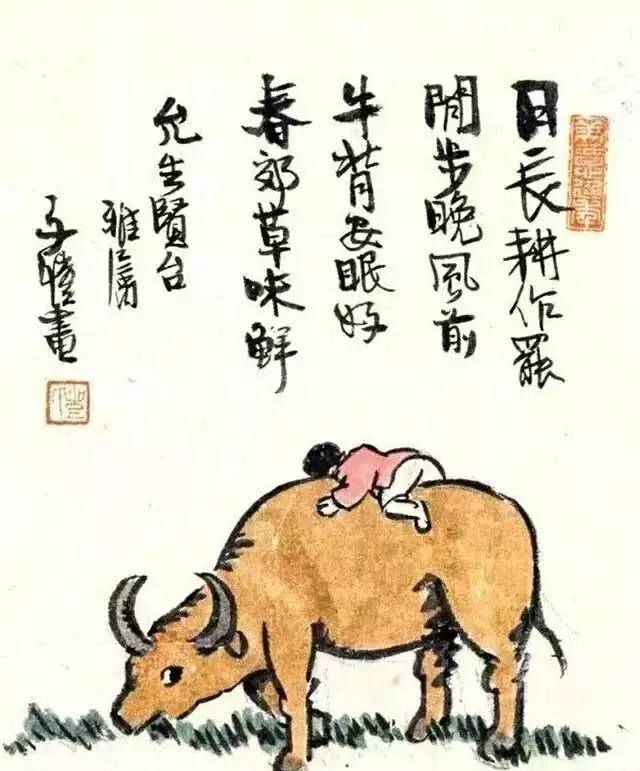 日長耕作罷
閒步晚風前
牛背安眠好
春郊草味鮮
允生賢台
雅属
子愷畫